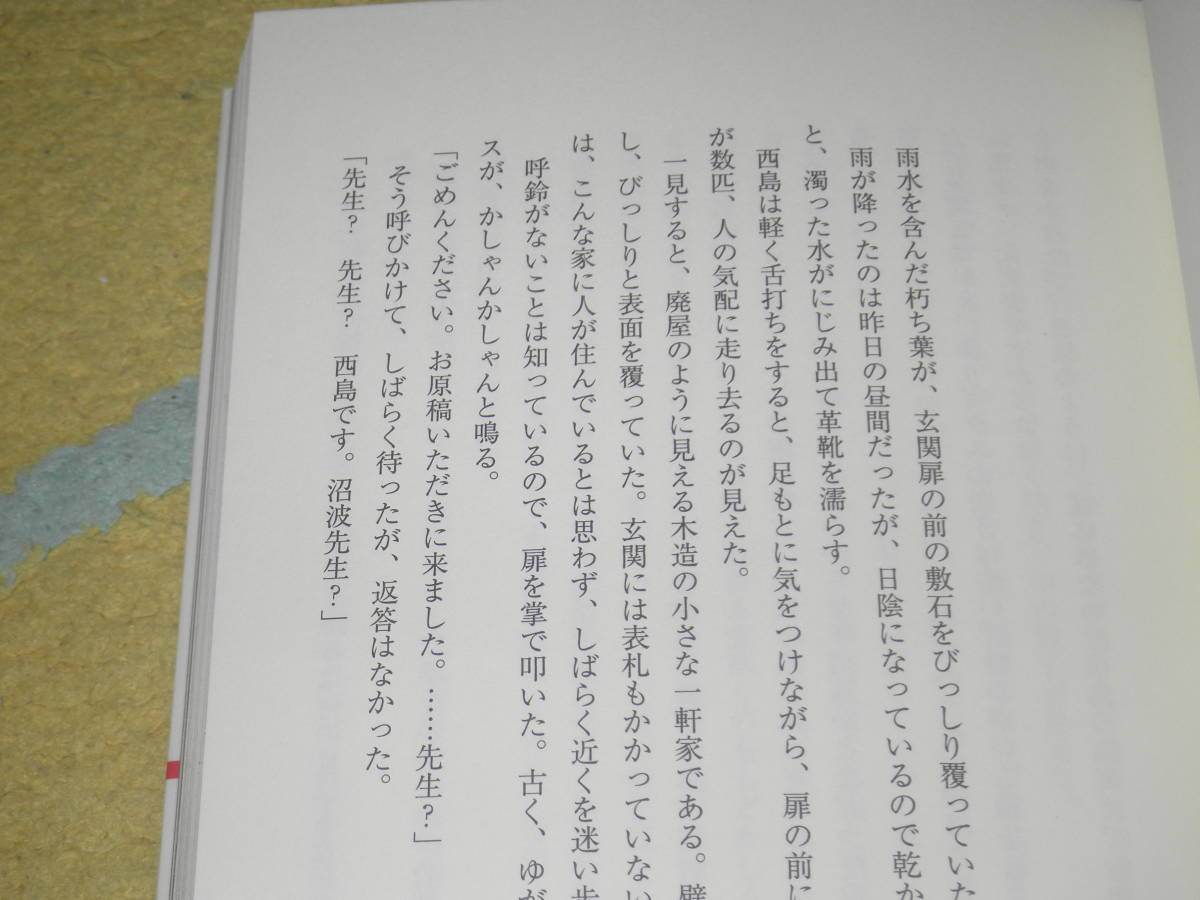 雨水を含んだ朽ち葉が、玄関扉の前の敷石をびっしり覆っていた
雨が降ったのは昨日の昼間だったが、日陰になっているので乾か
と、濁った水がにじみ出て革靴を濡らす。
西島は軽く舌打ちをすると、足もとに気をつけながら、扉の前に
が数匹、人の気配に走り去るのが見えた。
一見すると、廃屋のように見える木造の小さな一軒家である。壁
し、びっしりと表面を覆っていた。玄関には表札もかかっていない
は、こんな家に人が住んでいるとは思わず、しばらく近くを迷い歩
呼鈴がないことは知っているので、扉を掌で叩いた。古く、ゆが
スが、かしゃんかしゃんと鳴る。
「ごめんください。お原稿いただきに来ました。……先生？」
そう呼びかけて、しばらく待ったが、返答はなかった。
「先生？　先生？　西島です。沼波先生？」